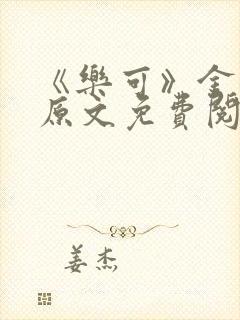 《樂可》金
原文免費閱
姜杰